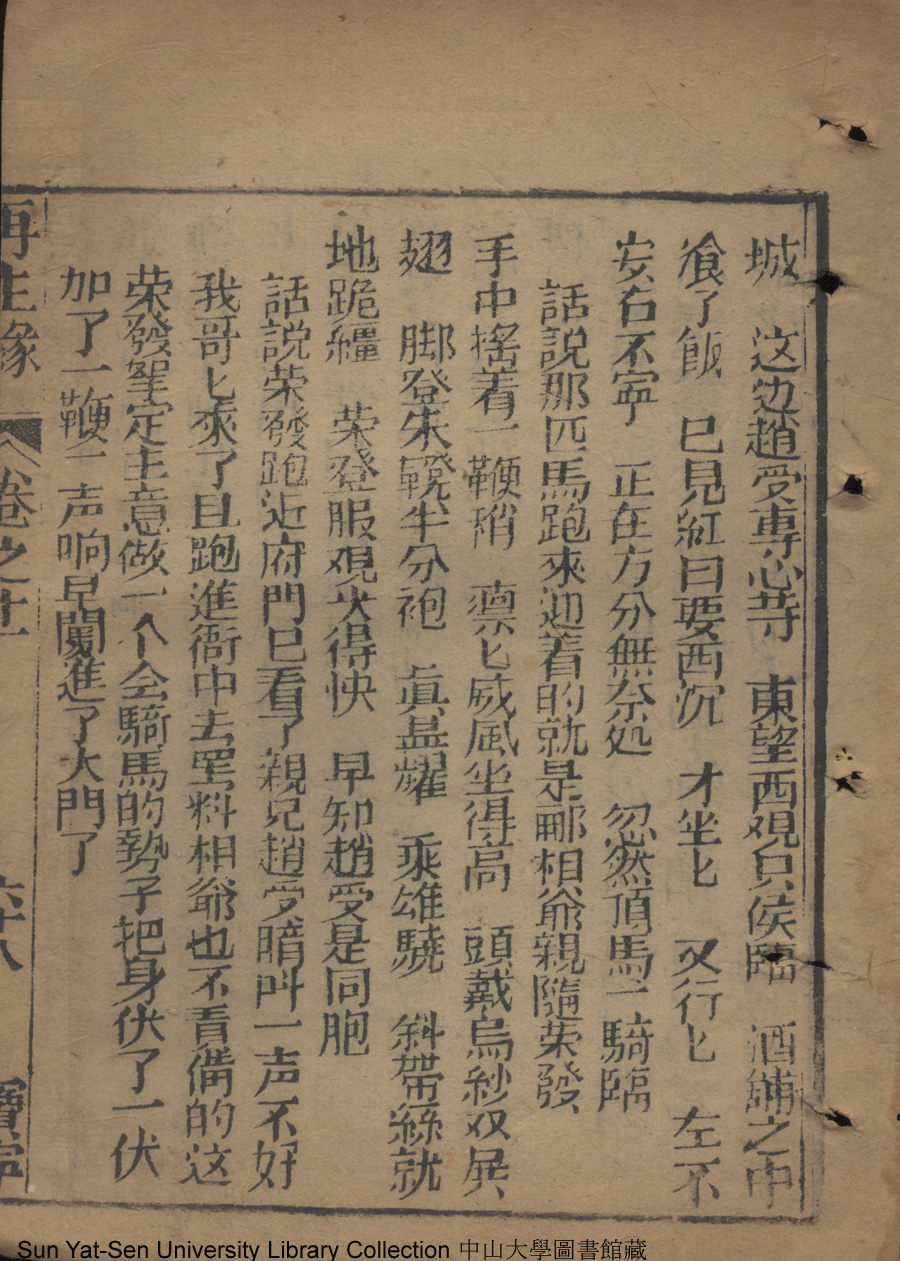 城　这边趙受專心等　東望西观只侯臨　酒鋪之中
飡了飯　已見紅日要西沉　才坐匕　又行匕　左不
安右不寧　正在方分無奈処　忽然頂馬一騎臨
話說那匹馬跑來迎着的就是郦相爺親隨荣發
手中搖着一鞭稍　凛匕威風坐得高　頭戴烏紗双展
翅　脚登朱靴半分袍　真是耀　乘雄驍　斜帶絲就
地跪繮　荣登服观火得快　早知趙受是同胞
話說荣發跑近府門已看了親兄趙受暗叫一声不好
我哥匕來了且跑進衙中去罢料相爺也不看備的这
荣發聖定主意做一个会騎馬的勢子把身伏了一伏
加了一鞭一声响早闖進了大門了
再生緣　卷之十一　六十八　寶寧
Sun Yat-Sen University Library Collection 中山大學圖書館藏